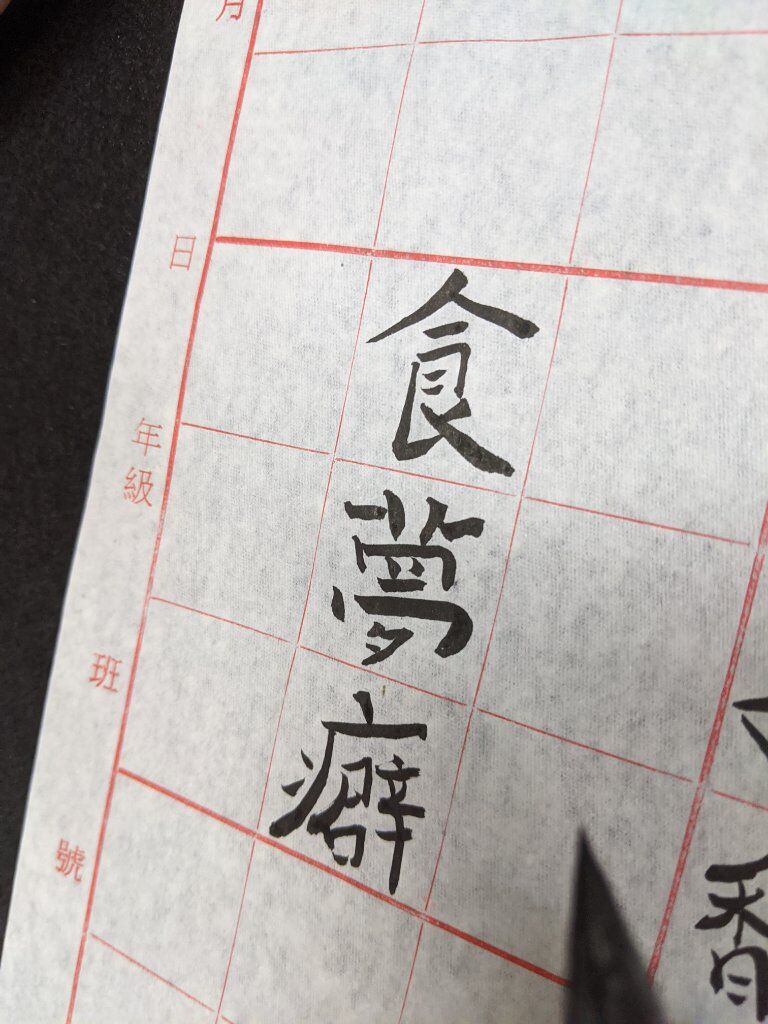 香
食夢癖
月 日 年級 班 號